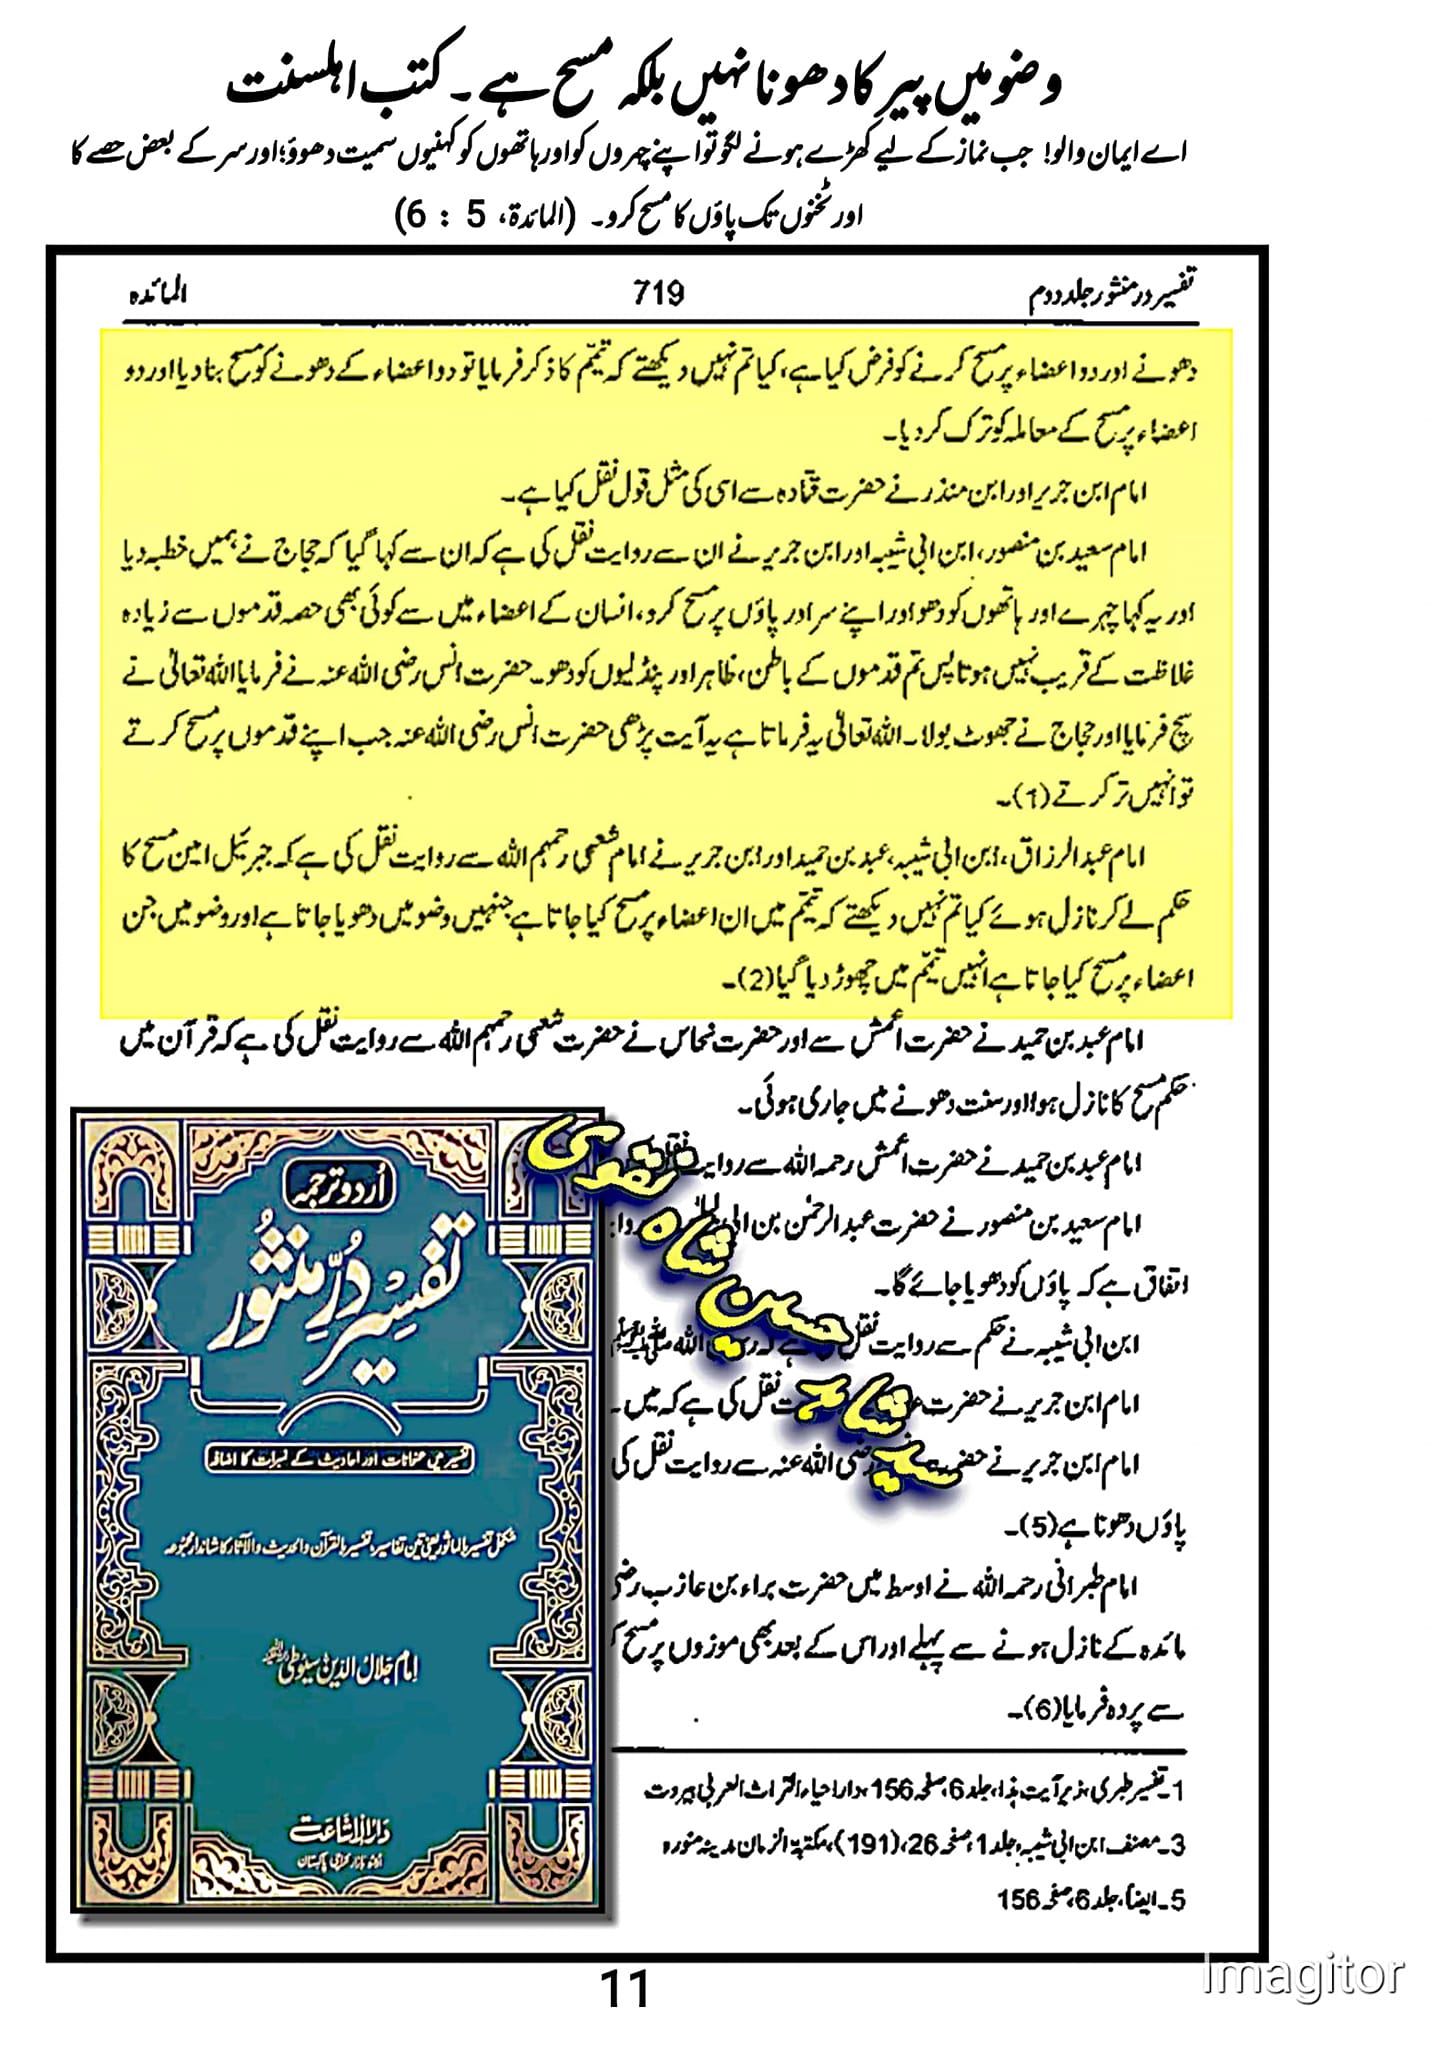 وضو میں پیر کا دھونا نہیں بلکہ مسح ہے۔ کتب اہلسنت
اے ایمان والو! جب نماز کے لیے کھڑے ہونے لگو تو اپنے چہروں کو اور ہاتھوں کو کہنیوں سمیت دھوؤ؛ اور سر کے بعض حصے کا
اور ٹخنوں تک پاؤں کا مسح کرو۔ (المائدۃ، 5 : 6)
تفسیر در منثور جلد دوم 719 المائدہ
دھونے اور دو اعضاء پر مسح کرنے کو فرض کیا ہے، کیا تم نہیں دیکھتے کہ تیمّم کا ذکر فرمایا تو دو اعضاء کے دھونے کو مسح بنا دیا اور دو
اعضاء پر مسح کے معاملہ کو ترک کر دیا۔
امام ابن جریر اور ابن منذر نے حضرت قتادہ سے اسی کی مثل قول نقل کیا ہے۔
امام سعید بن منصور، ابن ابی شیبہ اور ابن جریر نے ان سے روایت نقل کی ہے کہ ان سے کہا گیا کہ حجاج نے ہمیں خطبہ دیا
اور یہ کہا چہرے اور ہاتھوں کو دھوؤ اور اپنے سر اور پاؤں پر مسح کرو، انسان کے اعضاء میں سے کوئی بھی حصہ قدموں سے زیادہ
غلاظت کے قریب نہیں ہوتا پس تم قدموں کے باطن، ظاہر اور پنڈلیوں کو دھو۔ حضرت انس رضی اللہ عنہ نے فرمایا اللہ تعالیٰ نے
سچ فرمایا اور حجاج نے جھوٹ بولا۔ اللہ تعالیٰ یہ فرماتا ہے یہ آیت پڑھی حضرت انس رضی اللہ عنہ جب اپنے قدموں پر مسح کرتے
تو انہیں تر کرتے (1)۔
امام عبدالرزاق، ابن ابی شیبہ، عبد بن حمید اور ابن جریر نے امام شعبی رحمہم اللہ سے روایت نقل کی ہے کہ جبرئیل امین مسح کا
حکم لے کر نازل ہوئے کیا تم نہیں دیکھتے کہ تیمّم میں ان اعضاء پر مسح کیا جاتا ہے جنہیں وضو میں دھویا جاتا ہے اور وضو میں جن
اعضاء پر مسح کیا جاتا ہے انہیں تیمّم میں چھوڑ دیا گیا (2)۔
امام عبد بن حمید نے حضرت اعمش سے اور حضرت نحاس نے حضرت شعبی رحمہم اللہ سے روایت نقل کی ہے کہ قرآن میں
حکم مسح کا نازل ہوا اور سنت دھونے میں جاری ہوئی۔
امام عبد بن حمید نے حضرت اعمش رحمہ اللہ سے روایت نقل
امام سعید بن منصور نے حضرت عبدالرحمٰن بن ابی لیلیٰ
اتفاق ہے کہ پاؤں کو دھویا جائے گا۔
ابن ابی شیبہ نے حکم سے روایت نقل ہے کہ اللہ ﷺ
امام ابن جریر نے حضرت نقل کی ہے کہ میں۔
امام ابن جریر نے رضی اللہ عنہ سے روایت نقل کی
پاؤں دھونا ہے (5)۔
امام طبرانی رحمہ اللہ نے اوسط میں حضرت براء بن عازب رضی
مائدہ کے نازل ہونے سے پہلے اور اس کے بعد بھی موزوں پر مسح
سے پردہ فرمایا (6)۔
1۔ تفسیر طبری، زیر آیت ہذا، جلد 6، صفحہ 156، دار احیاء التراث العربی بیروت
3۔ مصنف ابن ابی شیبہ، جلد 1، صفحہ 26، (191)، مکتبۃ الزمان مدینہ منورہ
5۔ ایضاً، جلد 6، صفحہ 156
سید شاہد حسین شاہ نقوی
اُردو ترجمہ
تفسیر دُرِّ منثور
تفسیری عنوانات اور احادیث کے نمبرات کا اضافہ
مکمل تفسیر بالماثور یعنی متن تفاسیر، تفسیر بالقرآن والحدیث والآثار کا شاندار مجموعہ
امام جلال الدین سیوطی
دَارُالاِشَاعَت
اُردو بازار کراچی پاکستان
11
Imagitor